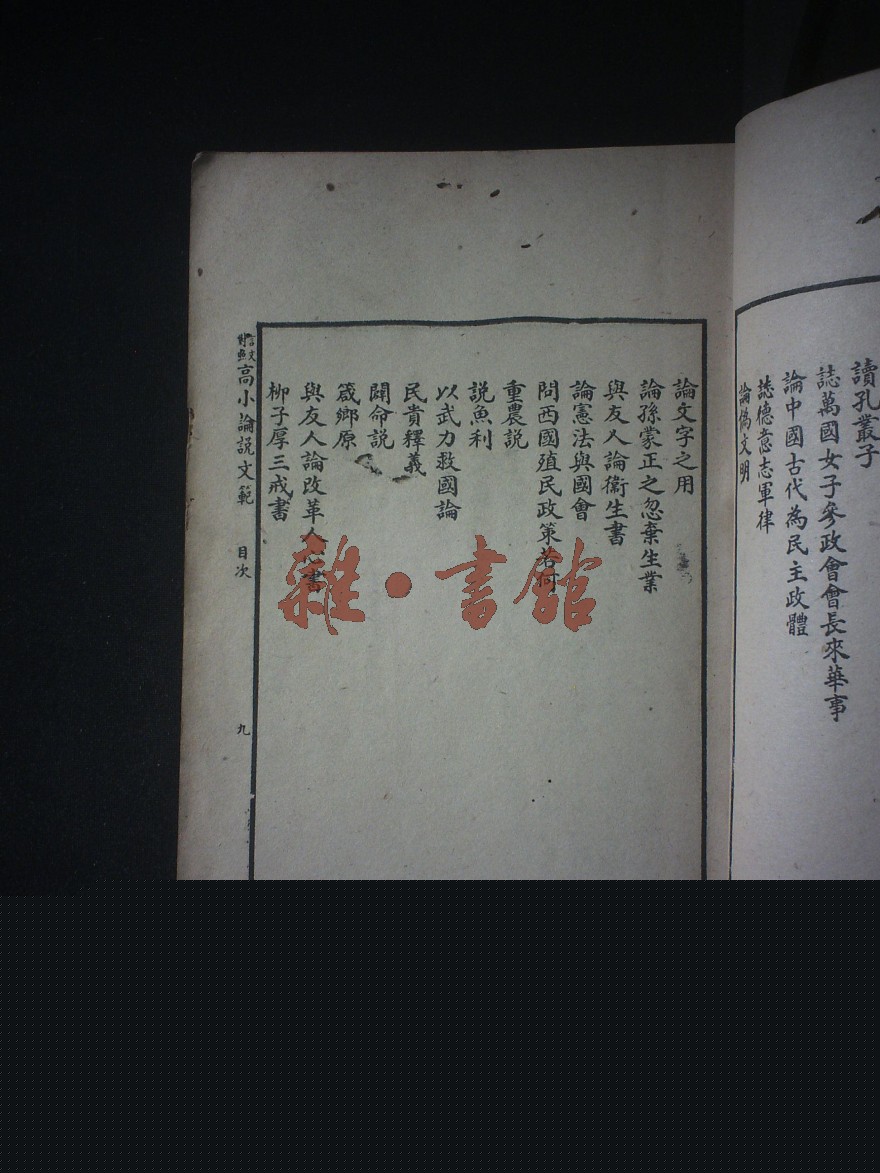 讀孔叢子
誌萬國女子參政會會長來華事
論中國古代為民主政體
誌德意志軍律
論偽文明
論文字之用
論孫蒙正之忽棄生業
與友人論衞生書
論憲法與國會
問西國殖民政策若何
重農説
説魚利
以武力救國論
民貴釋義
闢命説
箴鄉原
與友人論改革人心書
柳子厚三戒書
言文對照高小論説文範 目次 九
雜·書館